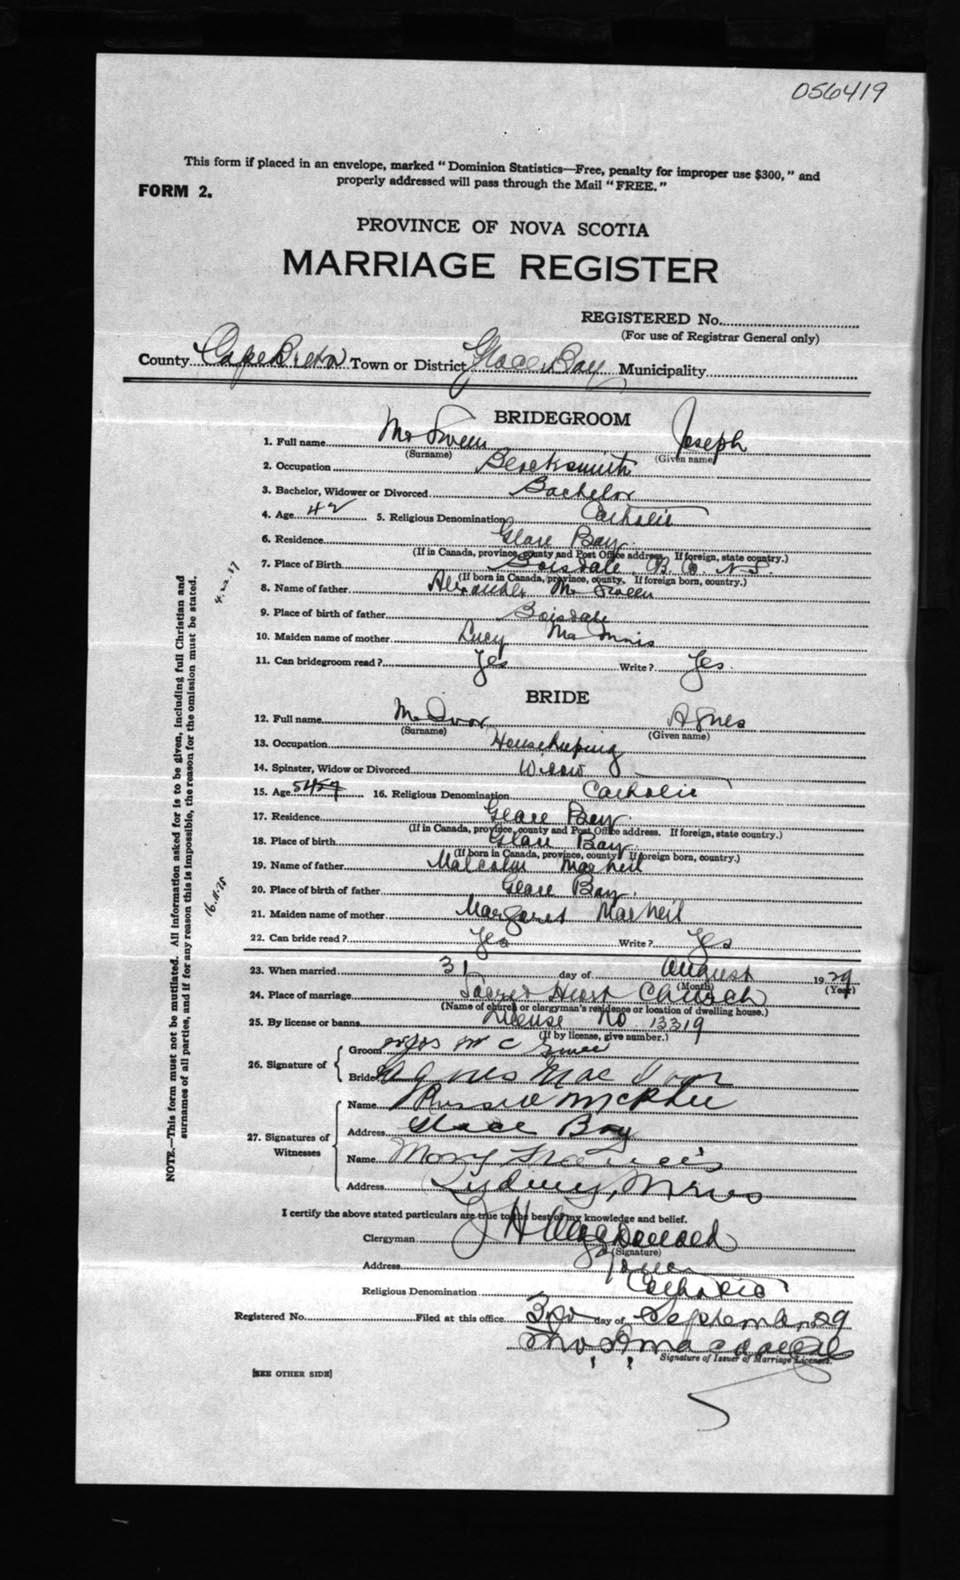 056419
This form if placed in an envelope, marked "Dominion Statistics—Free, penalty for improper use $300," and
properly addressed will pass through the Mail "FREE."
FORM 2.
PROVINCE OF NOVA SCOTIA
MARRIAGE REGISTER
REGISTERED No.
(For use of Registrar General only)
County Cape Breton Town or District Glace Bay Municipality
BRIDEGROOM
1. Full name Mc Sween Joseph
(Surname) (Given name)
2. Occupation Blacksmith
3. Bachelor, Widower or Divorced Bachelor
4. Age 42 5. Religious Denomination Catholic
6. Residence Glace Bay
(If in Canada, province, county and Post Office address. If foreign, state country.)
7. Place of Birth Boisdale C. B. N.S.
(If born in Canada, province, county. If foreign born, country.)
8. Name of father Alexander Mc Sween
9. Place of birth of father Boisdale
10. Maiden name of mother Lucy MacInnis
11. Can bridegroom read? Yes Write? Yes
BRIDE
12. Full name Mc Ivor Agnes
(Surname) (Given name)
13. Occupation Housekeeping
14. Spinster, Widow or Divorced Widow
15. Age 54 16. Religious Denomination Catholic
17. Residence Glace Bay
(If in Canada, province, county and Post Office address. If foreign, state country.)
18. Place of birth Glace Bay
(If born in Canada, province, county. If foreign born, country.)
19. Name of father Malcolm MacNeil
20. Place of birth of father Glace Bay
21. Maiden name of mother Margaret MacNeil
22. Can bride read? Yes Write? Yes
23. When married 31 day of August 1929
(Month) (Year)
24. Place of marriage Sacred Heart Church
(Name of church or clergyman's residence or location of dwelling house.)
25. By license or banns License No 13319
(If by license, give number.)
26. Signature of
Groom Jos Mc Swee
Bride Agnes Mac Ivor
27. Signatures of Witnesses
Name Russel McPhee
Address Glace Bay
Name Mary Francis
Address Sydney, Mines
I certify the above stated particulars are true to the best of my knowledge and belief.
Clergyman J H MacDonald
(Signature)
Address
Religious Denomination Catholic
Registered No. Filed at this office 3rd day of September 29
Thos MacDougall
Signature of Issuer of Marriage Licenses.
[SEE OTHER SIDE]
NOTE.—This form must not be mutilated. All information asked for is to be given, including full Christian and
surnames of all parties, and if for any reason this is impossible, the reason for the omission must be stated.